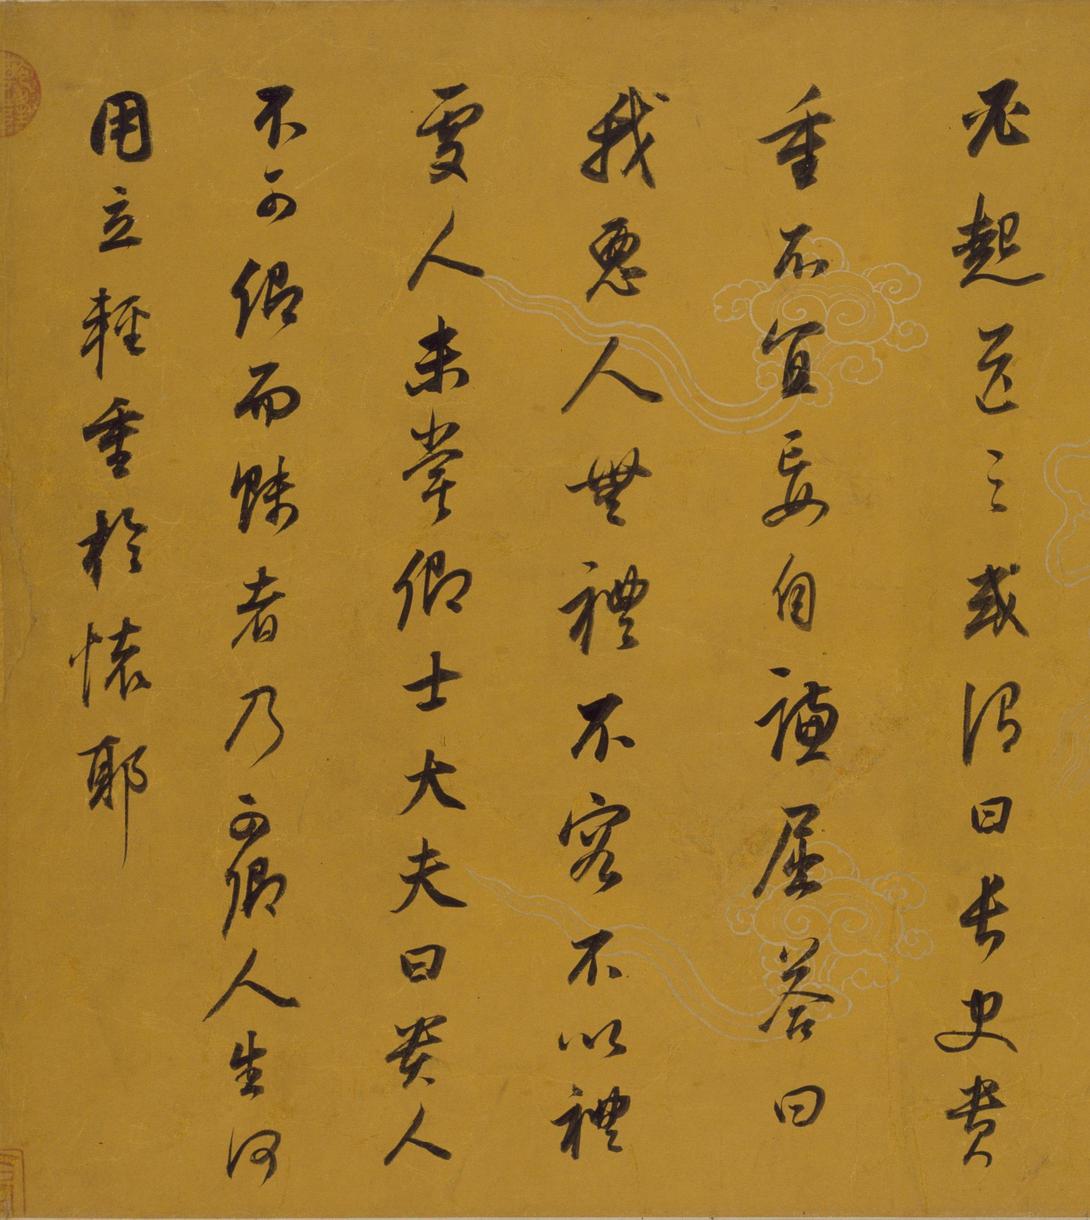 必起送之或謂曰長史貴
重不宜妄自謙屈答曰
我惡人無禮不容不以禮
處人未嘗卿士大夫曰貴人
不可卿而賤者乃可卿人生何
用立輕重於懷耶